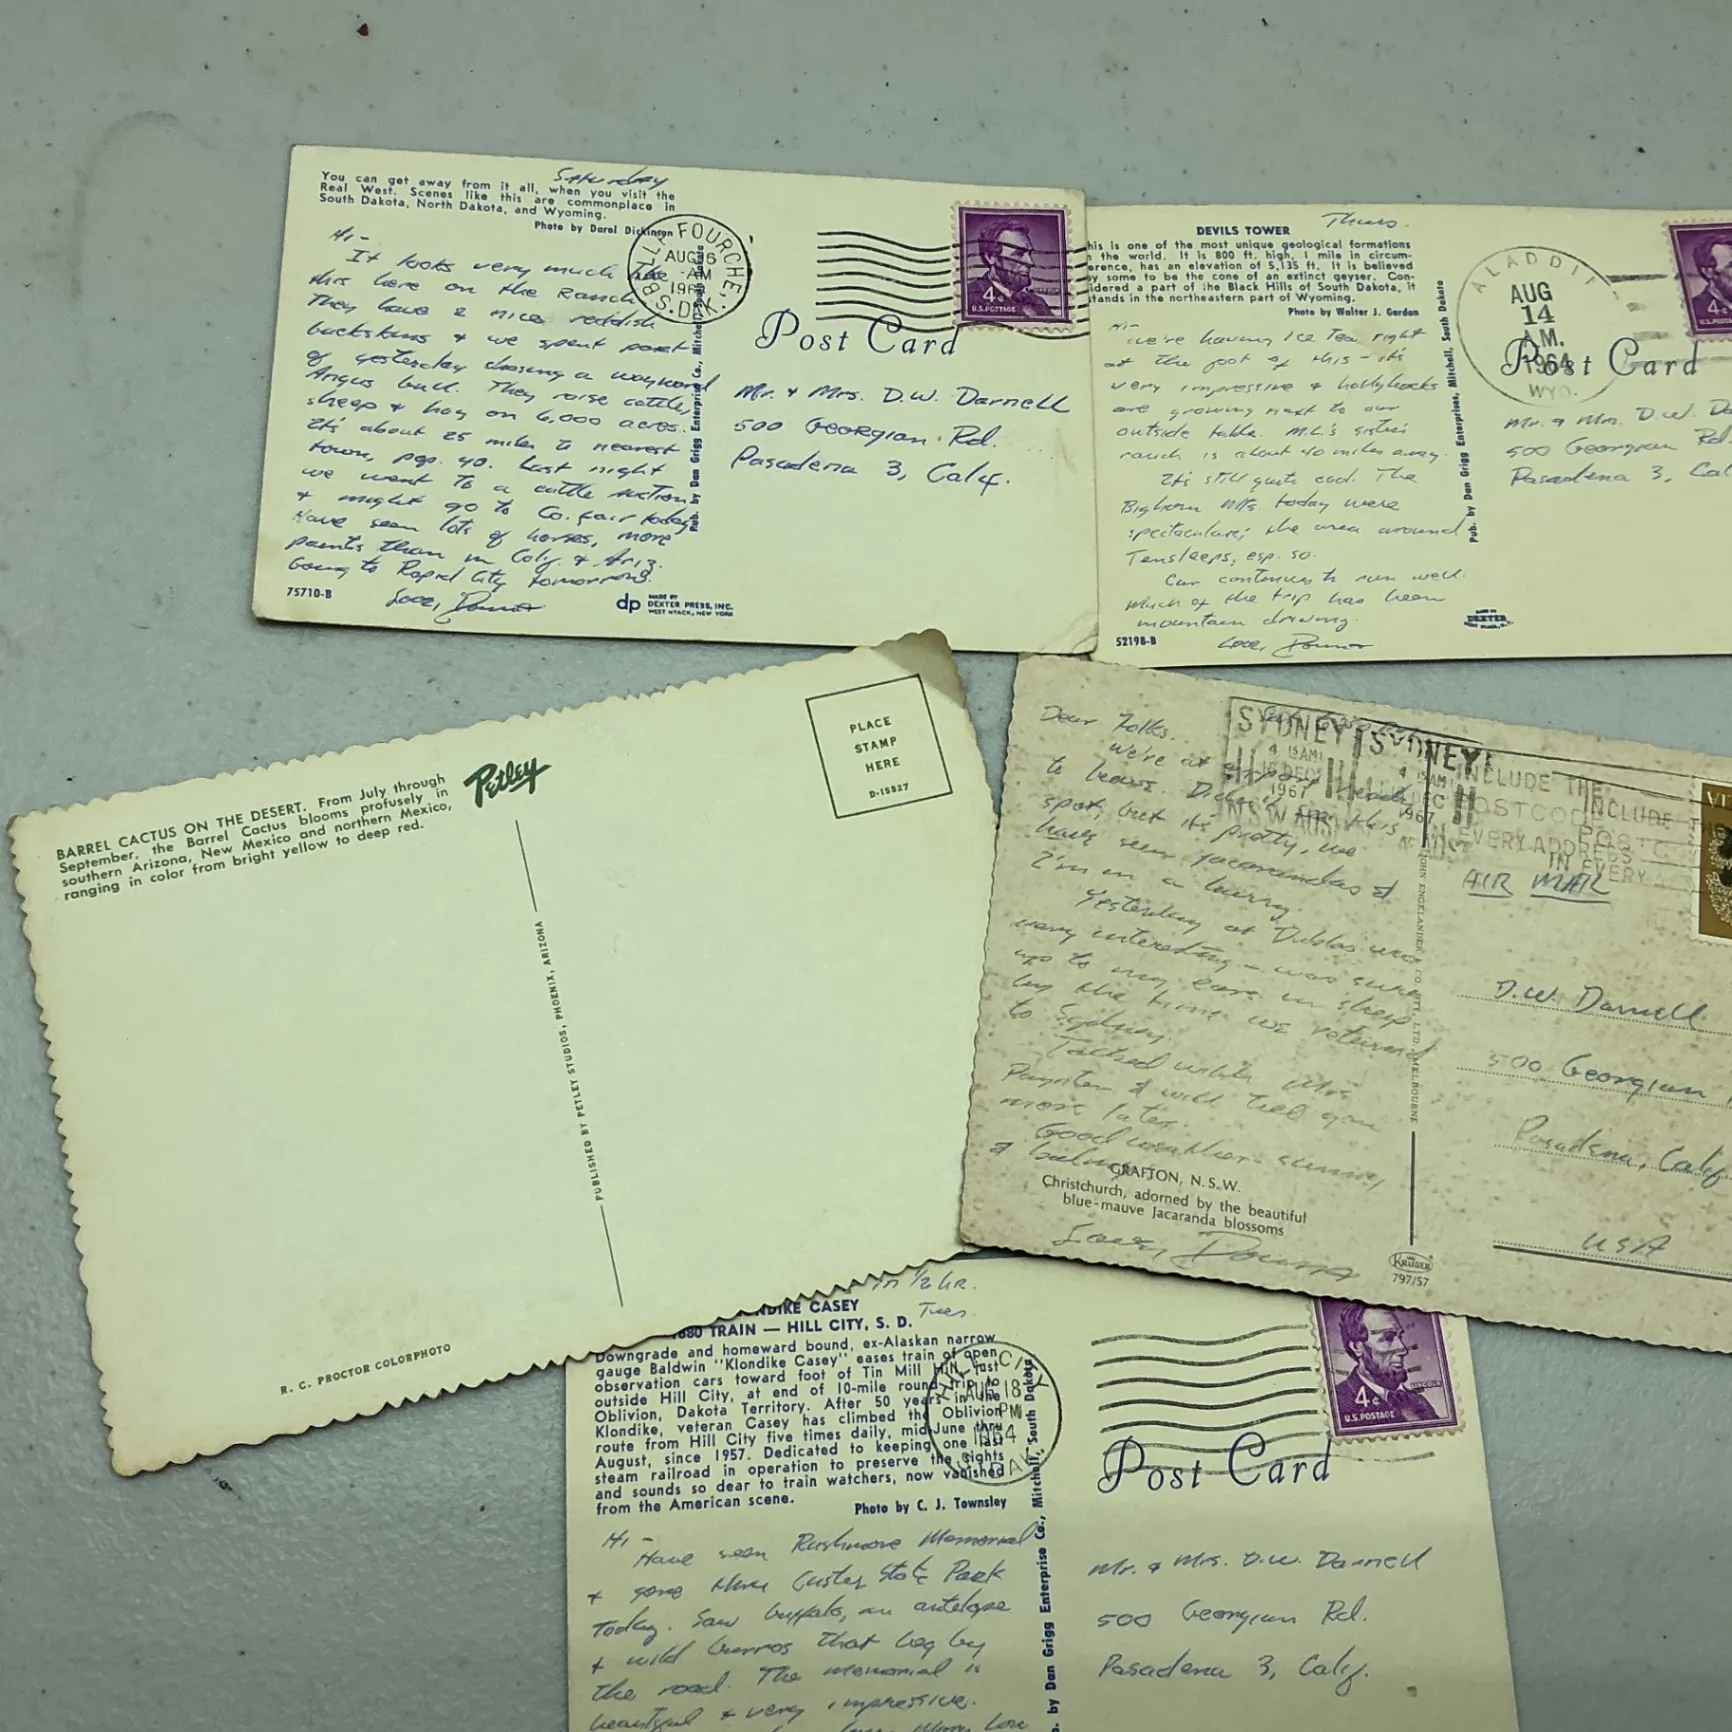 Saturday
You can get away from it all, when you visit the
Real West. Scenes like this are commonplace in
South Dakota, North Dakota, and Wyoming.
Photo by Darol Dickinson
BELLE FOURCHE,
AUG
AM
S. DAK.
4¢
U.S. POSTAGE
Post Card
Hi-
It looks very much like
this here on the Ranch.
They have 2 nice reddish
buckskins & we spent part
of yesterday chasing a wayward
Angus bull. They raise cattle,
sheep & hay on 6,000 acres.
It's about 25 miles to nearest
town, pop. 40. Last night
we went to a cattle auction
& might go to Co. fair today.
Have seen lots of horses, more
paints than in Calif. & Ariz.
Going to Rapid City tomorrow.
Love, Donna
75710-B
dp MADE BY
DEXTER PRESS, INC.
WEST NYACK, NEW YORK
Pub. by Dan Grigg Enterprise Co., Mitchell, South Dakota
Mr. & Mrs. D.W. Darnell
500 Georgian Rd.
Pasadena 3, Calif.
Thurs.
DEVILS TOWER
his is one of the most unique geological formations
the world. It is 800 ft. high, 1 mile in circum-
erence, has an elevation of 5,135 ft. It is believed
y some to be the cone of an extinct geyser. Con-
idered a part of the Black Hills of South Dakota, it
tands in the northeastern part of Wyoming.
Photo by Walter J. Gordon
ALADDIN
AUG
14
A.M.
1964
WYO.
4¢
Post Card
Hi-
We're having Ice Tea right
at the foot of this - it's
very impressive & hollyhocks
are growing next to our
outside table. M.L.'s sister's
ranch is about 40 miles away.
It's still quite cool. The
Bighorn Mts. today were
spectacular; the area around
Tensleeps, esp. so.
Car continues to run well.
Much of the trip has been
mountain driving.
Love, Donna
52198-B
MADE BY
DEXTER
Pub. by Dan Grigg Enterprises, Mitchell, South Dakota
Mr. & Mrs. D.W. Da
500 Georgian Rd.
Pasadena 3, Cal
BARREL CACTUS ON THE DESERT. From July through
September, the Barrel Cactus blooms profusely in
southern Arizona, New Mexico and northern Mexico,
ranging in color from bright yellow to deep red.
Petley
PLACE
STAMP
HERE
D-15527
PUBLISHED BY PETLEY STUDIOS, PHOENIX, ARIZONA
R. C. PROCTOR COLORPHOTO
Dear Folks.
We're at airport ready
to leave.
spot, but it's pretty, we
have seen jacarandas &
I'm in a hurry
Yesterday at Dubbo was
very interesting - was sure
up to my ears in sheep
by the time we returned
to Sydney.
Talked with Mrs
Paynter & will tell you
more later.
Good weather - sunny
& balmy
Love, Donna
SYDNEY SYDNEY
4 15AM
15 DEC
1967
N.S.W. AUST
4 15AM
DEC
1967
AUST
INCLUDE THE
POSTCODE
EVERY ADDRESS
INCLUDE
POSTC
IN EVERY
AIR MAIL
GRAFTON, N.S.W.
Christchurch, adorned by the beautiful
blue-mauve Jacaranda blossoms
JOHN ENGELANDER & CO. PTY. LTD. MELBOURNE
KRUGER
797/57
D.W. Darnell
500 Georgian
Pasadena, Calif
USA
in 1/2 hr.
Tues.
NDIKE CASEY
880 TRAIN — HILL CITY, S. D.
Downgrade and homeward bound, ex-Alaskan narrow
gauge Baldwin "Klondike Casey" eases train of open
observation cars toward foot of Tin Mill Hill, just
outside Hill City, at end of 10-mile round trip to
Oblivion, Dakota Territory. After 50 years in the
Klondike, veteran Casey has climbed the Oblivion
route from Hill City five times daily, mid-June thru
August, since 1957. Dedicated to keeping one last
steam railroad in operation to preserve the sights
and sounds so dear to train watchers, now vanished
from the American scene.
Photo by C. J. Townsley
HILL CITY
AUG 18
PM
1964
S. DAK.
LINCOLN
4¢
U.S. POSTAGE
Post Card
Hi-
Have seen Rushmore Memorial
& gone thru Custer State Park
today. Saw buffalo, an antelope
& wild burros that beg by
the road. The memorial is
beautiful & very impressive.
b. by Dan Grigg Enterprise Co., Mitchell, South Dakota
Mr. & Mrs. D.W. Darnell
500 Georgian Rd.
Pasadena 3, Calif.